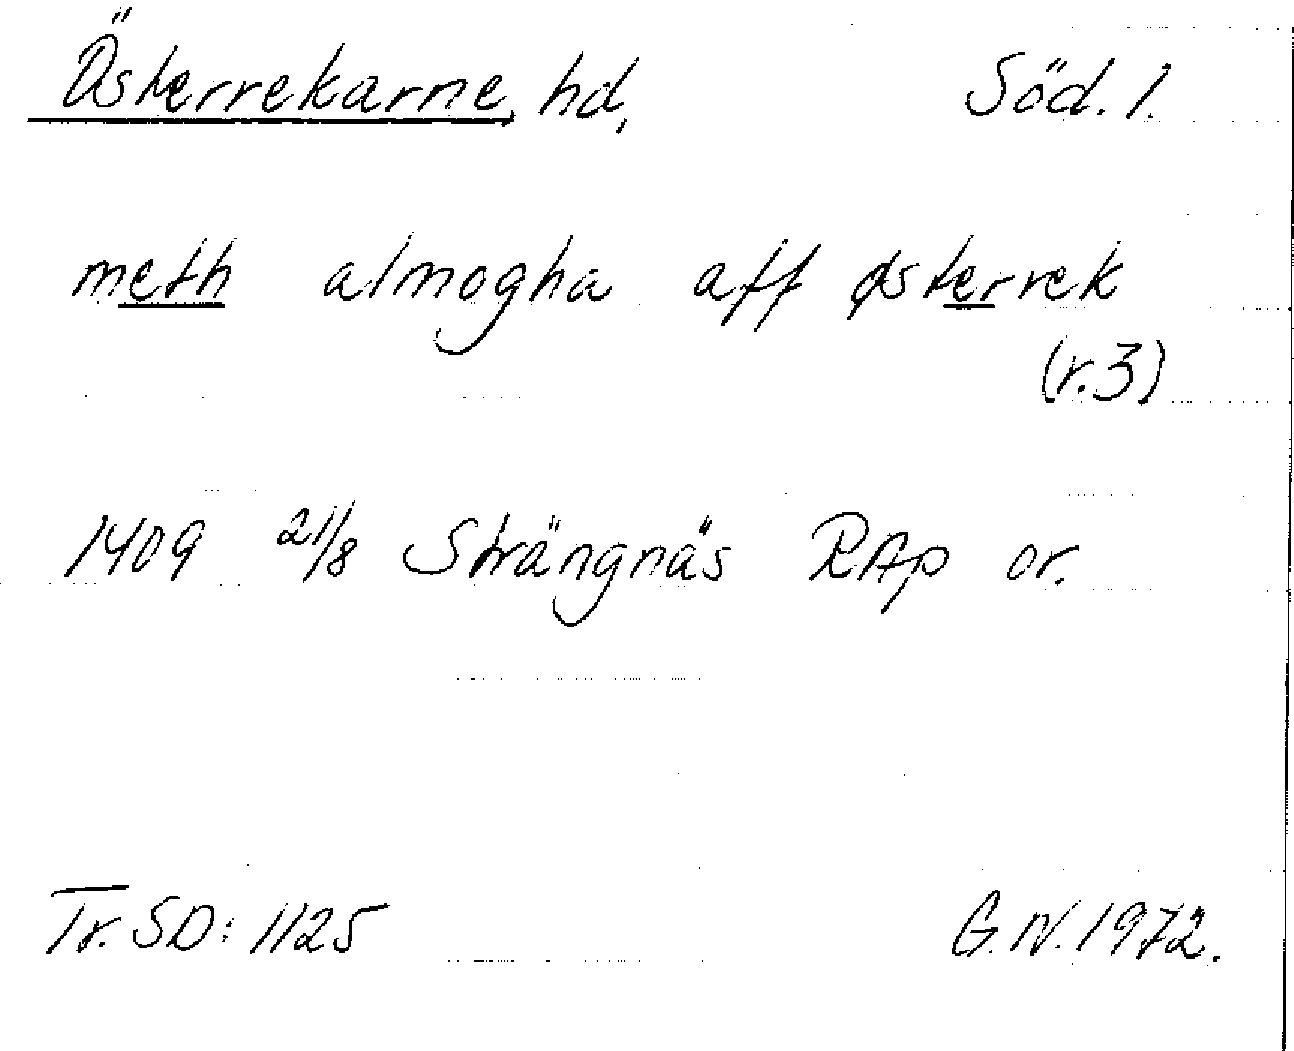 Österrekarne, hd,
Söd. 1.
meth almogha aff østerrek
(r.3)
1409 21/8 Strängnäs RAp or.
Tr. SD: 1125
G.N. 1972.